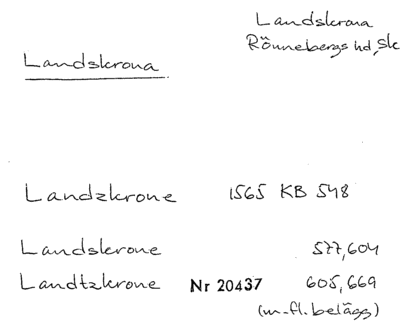 Landskrona
Rönnebergs hd, Sk
Landskrona
Landzkrone 1565 KB 548
Landskrone 577,604
Landtzkrone Nr 20437 605,669
(m.fl. belägg)